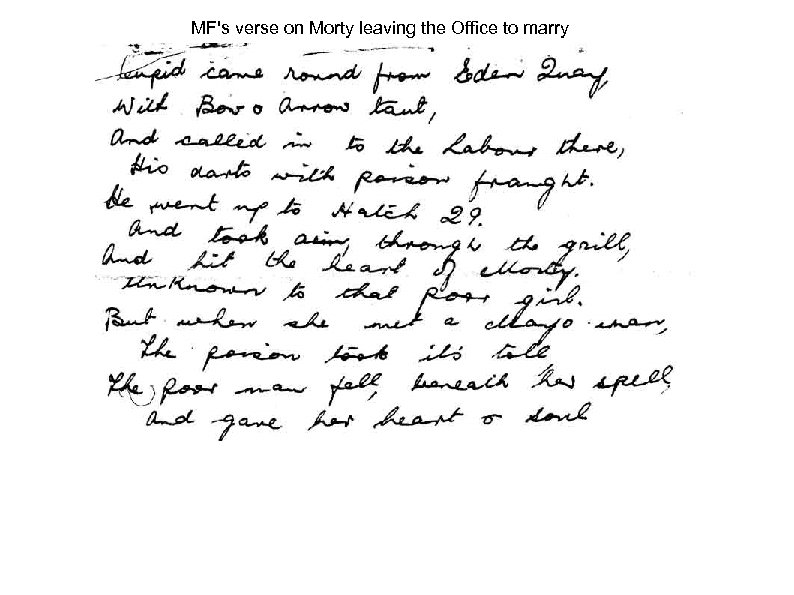 MF's verse on Morty leaving the Office to marry
Cupid came round from Eden Quay
With Bow & Arrow taut,
And called in to the Labour there,
His darts with poison fraught.
He went up to Hatch 29.
And took aim, through the grill,
And hit the heart of Morty.
Unknown to that poor girl.
But when she met a Mayo man,
The poison took it's toll
The poor man fell, beneath her spell,
And gave her heart & soul